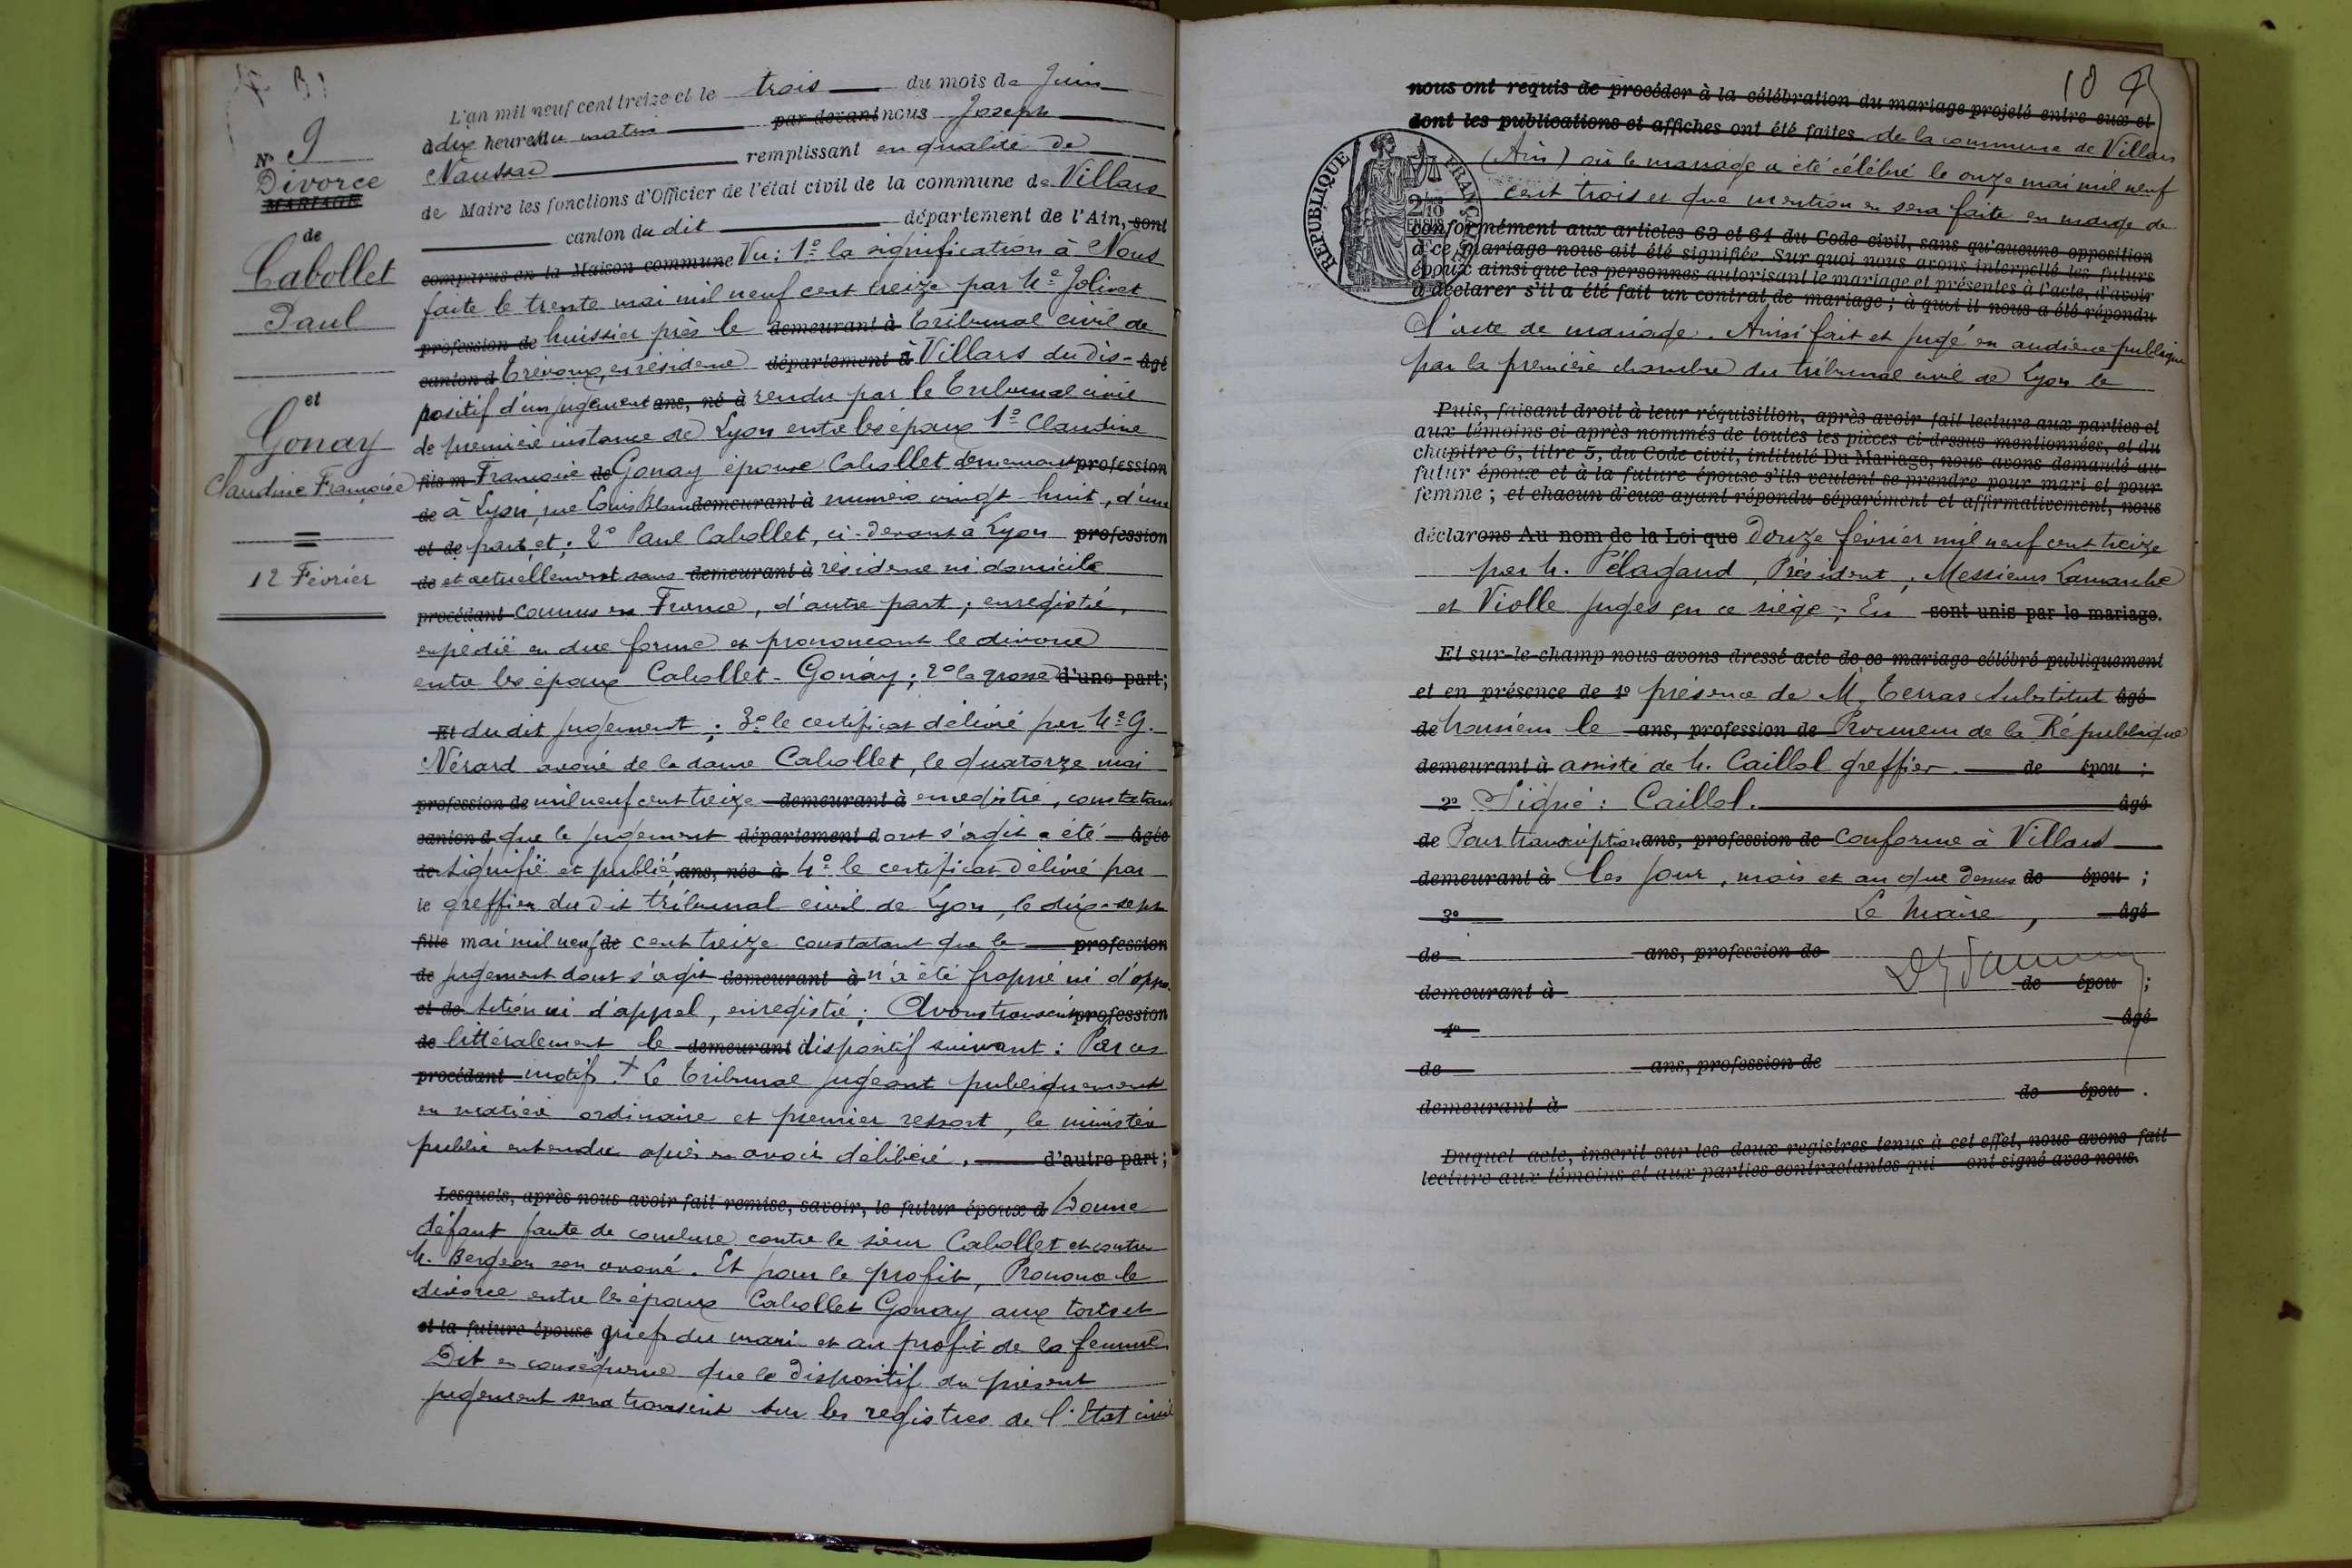 N° 9
Divorce
MARIAGE
de
Cabollet
Paul
et
Gonay
Claudine Françoise
12 Février
L'an mil neuf cent treize et le trois du mois de Juin
à dix heures du matin par devant nous Joseph
remplissant en qualité de
de Maire les fonctions d'Officier de l'état civil de la commune de Villars
canton du dit département de l'Ain, sont
comparus en la Maison commune Vu : 1° la signification à Nous
faite le trente mai mil neuf cent treize par Me Jolivet
profession de huissier près le demeurant à Tribunal civil de
canton d Trévoux, en résidence département d à Villars du dis- âgé
positif d'un jugement ans, né à rendu par le Tribunal civil
de première instance de Lyon entre les époux 1° Claudine
fils m Françoise de Gonay épouse Cabollet demeurant profession
de à Lyon, rue Louis Blanc demeurant à numéro vingt-huit, d'une
et de part, et : 2° Paul Cabollet, ci-devant à Lyon profession
de et actuellement sans demeurant à résidence ni domicile
procédant connus en France, d'autre part ; enregistré,
expédié en due forme et prononçant le divorce
entre les époux Cabollet-Gonay ; 2° la grosse d'une part ;
Et du dit jugement ; 3° le certificat délivré par Me G.
Nérard avoué de la dame Cabollet, le quatorze mai
profession de mil neuf cent treize demeurant à enregistré, constatant
canton d que le jugement département d dont s'agit a été âgée
de signifié et publié, ans, née à 4° le certificat délivré par
le greffier du dit tribunal civil de Lyon, le dix-sept
fille mai mil neuf de cent treize constatant que le profession
de jugement dont s'agit demeurant à n'a été frappé ni d'oppo-
et de sition ni d'appel, enregistré ; Avons transcrit profession
de littéralement le demeurant dispositif suivant : Par ces
procédant motifs + Le Tribunal jugeant publiquement
en matière ordinaire et premier ressort, le ministère
public entendu après en avoir délibéré, d'autre part ;
Lesquels, après nous avoir fait remise, savoir, le futur époux d Donne
défaut faute de conclure contre le sieur Cabollet et contre
M. Bergeon son avoué. Et pour le profit, Prononce le
divorce entre les époux Cabollet Gonay aux torts et
et la future épouse griefs du mari et au profit de la femme
Dit en conséquence que le dispositif du présent
jugement sera transcrit sur les registres de l'Etat civil
10
nous ont requis de procéder à la célébration du mariage projeté entre eux et
dont les publications et affiches ont été faites de la commune de Villars
(Ain) où le mariage a été célébré le onze mai mil neuf
cent trois et que mention en sera faite en marge de
RÉPUBLIQUE FRANÇAISE
2/10 EN SUS
conformément aux articles 63 et 64 du Code civil, sans qu'aucune opposition
à ce mariage nous ait été signifiée. Sur quoi nous avons interpellé les futurs
époux ainsi que les personnes autorisant le mariage et présentes à l'acte, d'avoir
à déclarer s'il a été fait un contrat de mariage ; à quoi il nous a été répondu
l'acte de mariage. Ainsi fait et jugé en audience publique
par la première chambre du tribunal civil de Lyon le
Puis, faisant droit à leur réquisition, après avoir fait lecture aux parties et
aux témoins ci-après nommés de toutes les pièces ci-dessus mentionnées, et du
chapitre 6, titre 5, du Code civil, intitulé Du Mariage, nous avons demandé au
futur époux et à la future épouse s'ils veulent se prendre pour mari et pour
femme ; et chacun d'eux ayant répondu séparément et affirmativement, nous
déclarons Au nom de la Loi que Douze février mil neuf cent treize
par M. Pélagaud, Président, Messieurs Lamarche
et Violle juges en ce siège ; En sont unis par le mariage.
Et sur-le-champ nous avons dressé acte de ce mariage célébré publiquement
et en présence de 1° présence de M. Terras Substitut âgé
de Monsieur le ans, profession de Procureur de la République
demeurant à assisté de M. Caillol greffier. de épou ;
2° Signé : Caillol. âgé
de Pour transcription ans, profession de conforme à Villars
demeurant à les jour, mois et an que dessus de épou ;
3° Le Maire, âgé
de ans, profession de
demeurant à de épou ;
4° âgé
de ans, profession de
demeurant à de épou .
Duquel acte, inscrit sur les deux registres tenus à cet effet, nous avons fait
lecture aux témoins et aux parties contractantes qui ont signé avec nous.